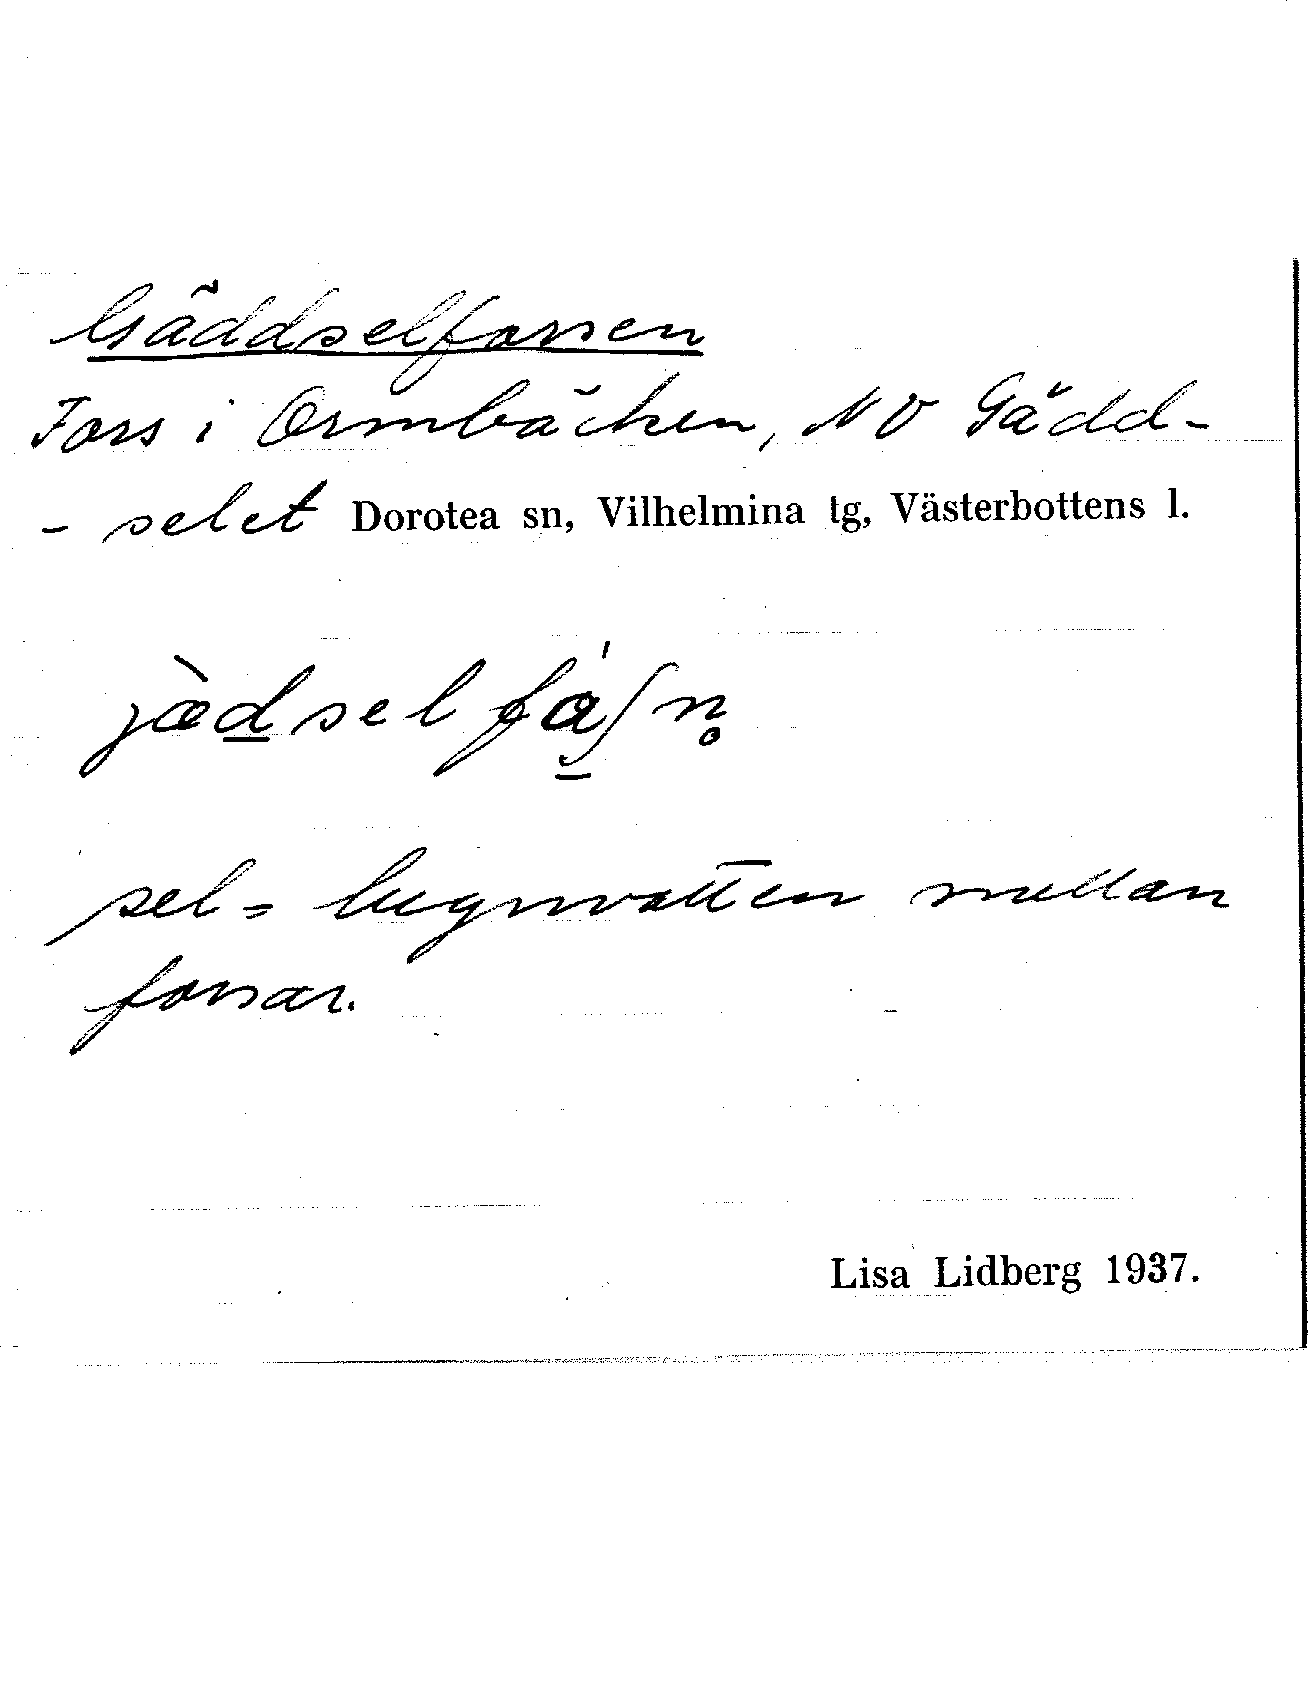 Gäddselforsen
Fors i Ormbäcken, NO Gädd-
- selet Dorotea sn, Vilhelmina tg, Västerbottens l.
jæ̀d̲selfá̲ʃn̥
sel = lugnvatten mellan
forsar.
Lisa Lidberg 1937.